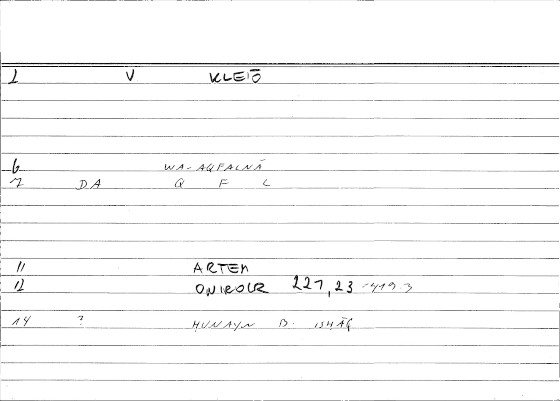 1 V KLEIŌ
6 WA-AQFALNĀ
7 DA Q F L
11 ARTEM
12 ONIROCR 227,23 -419.3
14 ? ḤUNAYN B. ISḤĀQ